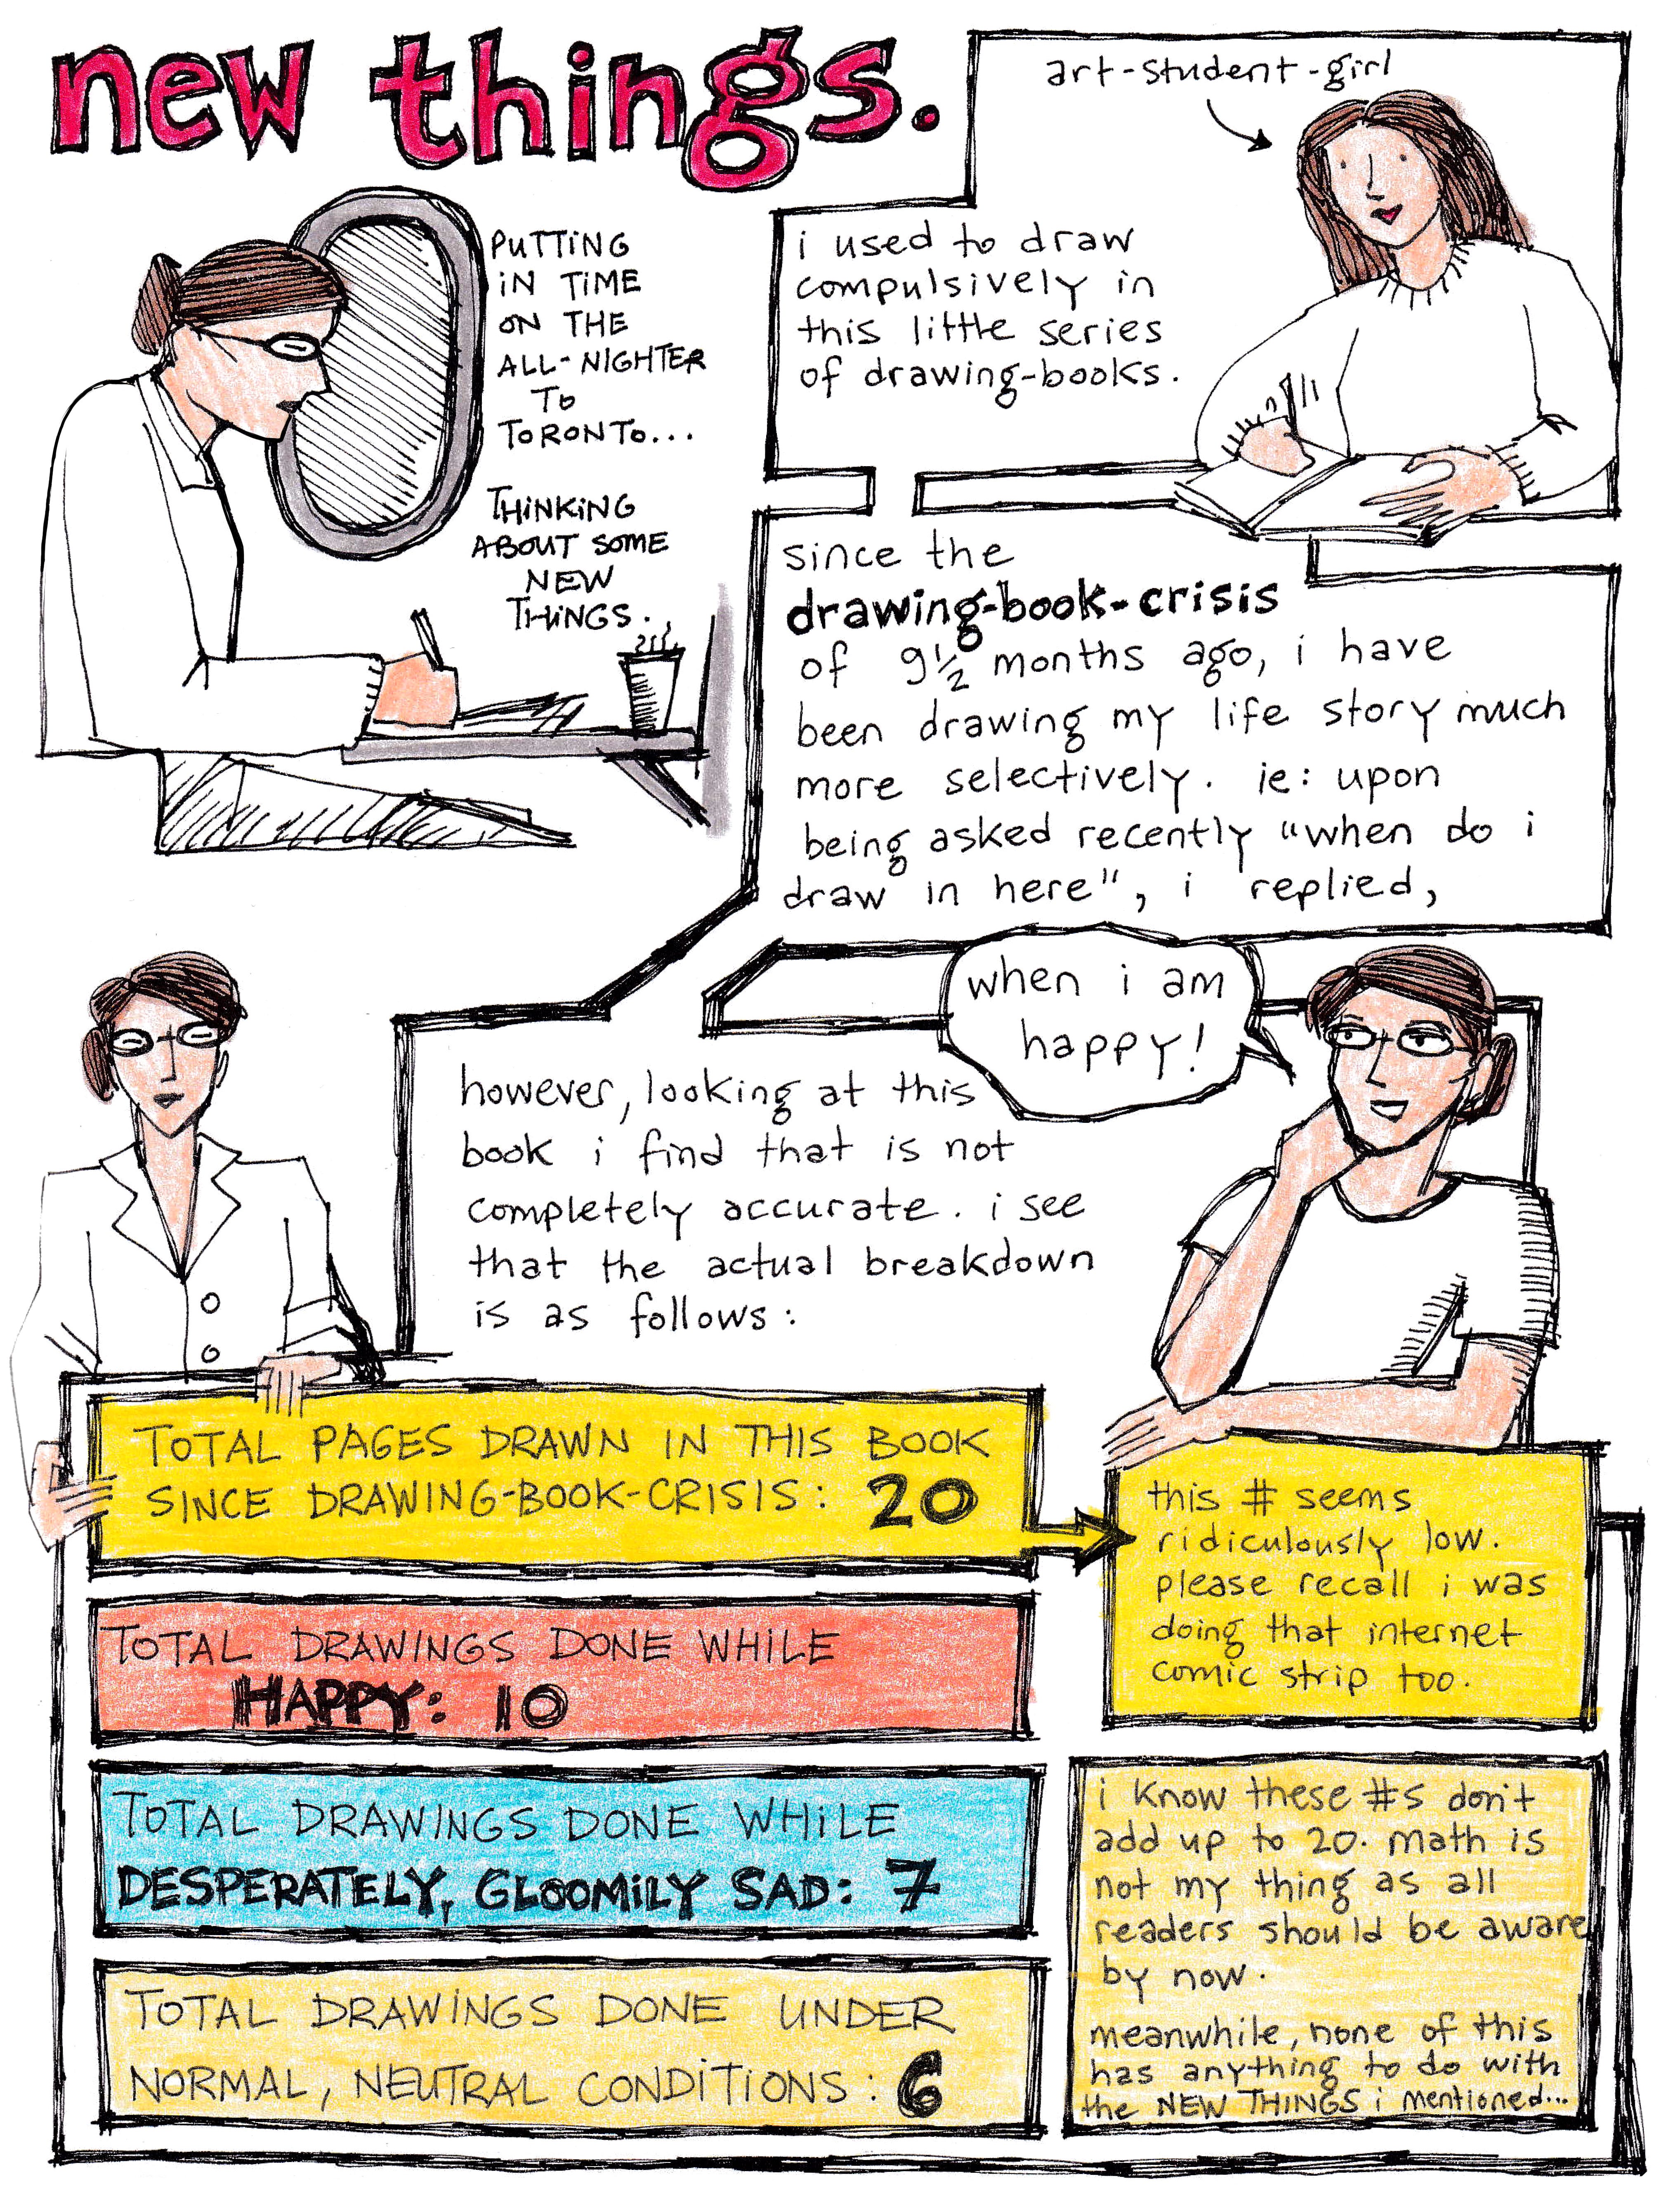 new things.
PUTTING
IN TIME
ON THE
ALL-NIGHTER
TO
TORONTO...
THINKING
ABOUT SOME
NEW
THINGS.
art-student-girl
i used to draw
compulsively in
this little series
of drawing-books.
since the
drawing-book-crisis
of 9 1/2 months ago, i have
been drawing my life story much
more selectively. ie: upon
being asked recently "when do i
draw in here", i replied,
when i am
happy!
however, looking at this
book i find that is not
completely accurate. i see
that the actual breakdown
is as follows:
TOTAL PAGES DRAWN IN THIS BOOK
SINCE DRAWING-BOOK-CRISIS: 20
this # seems
ridiculously low.
please recall i was
doing that internet
comic strip too.
TOTAL DRAWINGS DONE WHILE
HAPPY: 10
TOTAL DRAWINGS DONE WHILE
DESPERATELY, GLOOMILY SAD: 7
TOTAL DRAWINGS DONE UNDER
NORMAL, NEUTRAL CONDITIONS: 6
i know these #s don't
add up to 20. math is
not my thing as all
readers should be aware
by now.
meanwhile, none of this
has anything to do with
the NEW THINGS i mentioned...